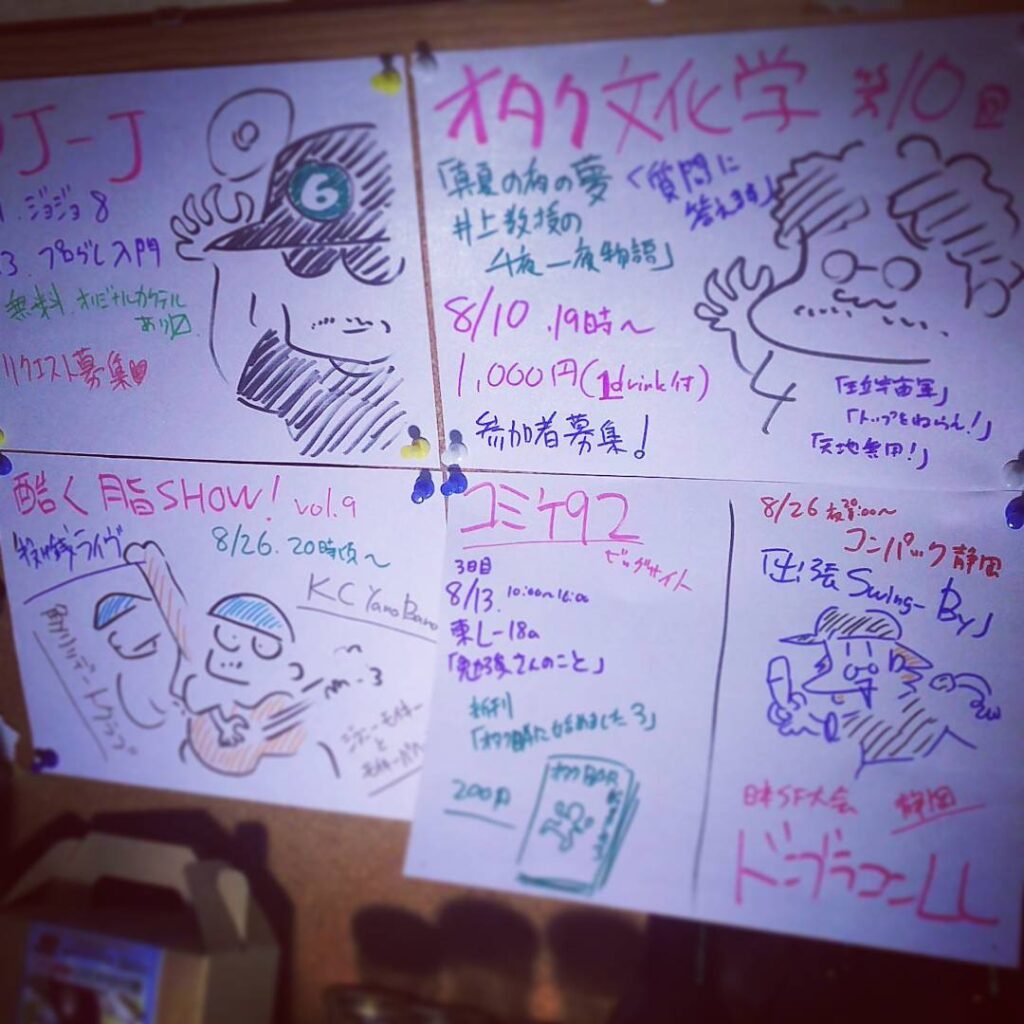 J-J
ジョジョ8
3.プロらし入門
無料 オリジナルカクテル
あり
リクエスト募集♥
6
オタク文化学 第10回
「真夏の夜の夢
井上教授の
千夜一夜物語」
〈質問に
答えます」
8/10.19時〜
1,000円(1drink付)
参加者募集!
「王立宇宙軍」
「トップをねらえ!」
「天地無用!」
酷く脂SHOW! vol.9
投げ銭ライヴ
8/26.20時頃〜
KC YanoBano
コミケ92
ビッグサイト
3日目
8/13.10:00〜16:00
東L-18a
新刊
200円
8/26 20:00〜
コンパック静岡
「出張Swing-By」
日本SF大会 静岡
ドンブラコンLL